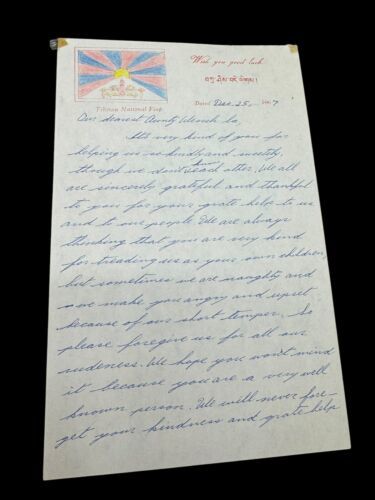 Wish you good luck.
བཀྲ་ཤིས་བདེ་ལེགས།
Tibetan National Flag.
Dated Dec. 25, 1967
Our dearest Aunty la,
It's very kind of you for
helping us so kindly and sweetly,
though we don't know each other. We all
are sincerely grateful and thankful
to you for your grate help to us
and to our people. We are always
thinking that you are very kind
for treading us as your own children,
but sometimes we are naughty and
we make you angry and upset
because of our short temper. So
please foregive us for all our
rudeness. We hope you won't mind
it because you are a very well
known person. We will never fore-
get your kindness and grate help